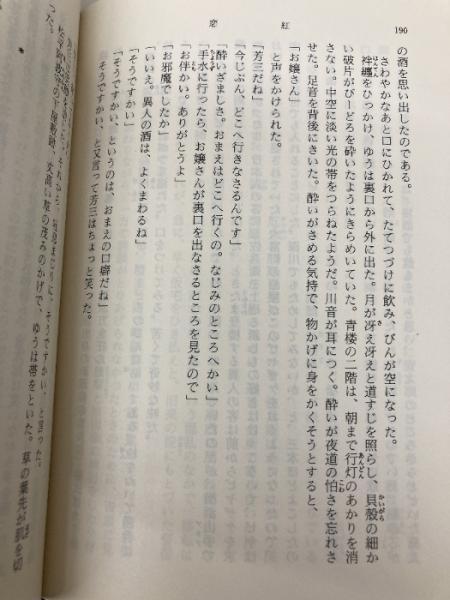 190
恋 紅
の酒を思い出したのである。
さわやかなあと口にひかれて、たてつづけに飲み、びんが空になった。
袢纏をひっかけ、ゆうは裏口から外に出た。月が冴え冴えと道すじを照らし、貝殻の細か
い破片がびーどろを砕いたようにきらめいていた。青楼の二階は、朝まで行灯のあかりを消
さない。中空に淡い光の帯をつらねたようだ。川音が耳につく。酔いが夜道の怕さを忘れさ
せた。足音を背後にきいた。酔いがさめる気持で、物かげに身をかくそうとすると、
「お嬢さん」
と声をかけられた。
「芳三だね」
「今じぶん、どこへ行きなさるんです」
「酔いざましさ。おまえはどこへ行くの。なじみのところへかい」
「手水に行ったら、お嬢さんが裏口を出なさるところを見たので」
「お伴かい。ありがとうよ」
「お邪魔でしたか」
「いいえ。異人の酒は、よくまわるね」
「そうですかい」
「そうですかい、というのは、おまえの口癖だね」
そうですかい、と又言って芳三はちょっと笑った。
そうですかい、と言った。
丈高い草の茂みのかげで、ゆうは帯をといた。草の葉先が肌を切
った。